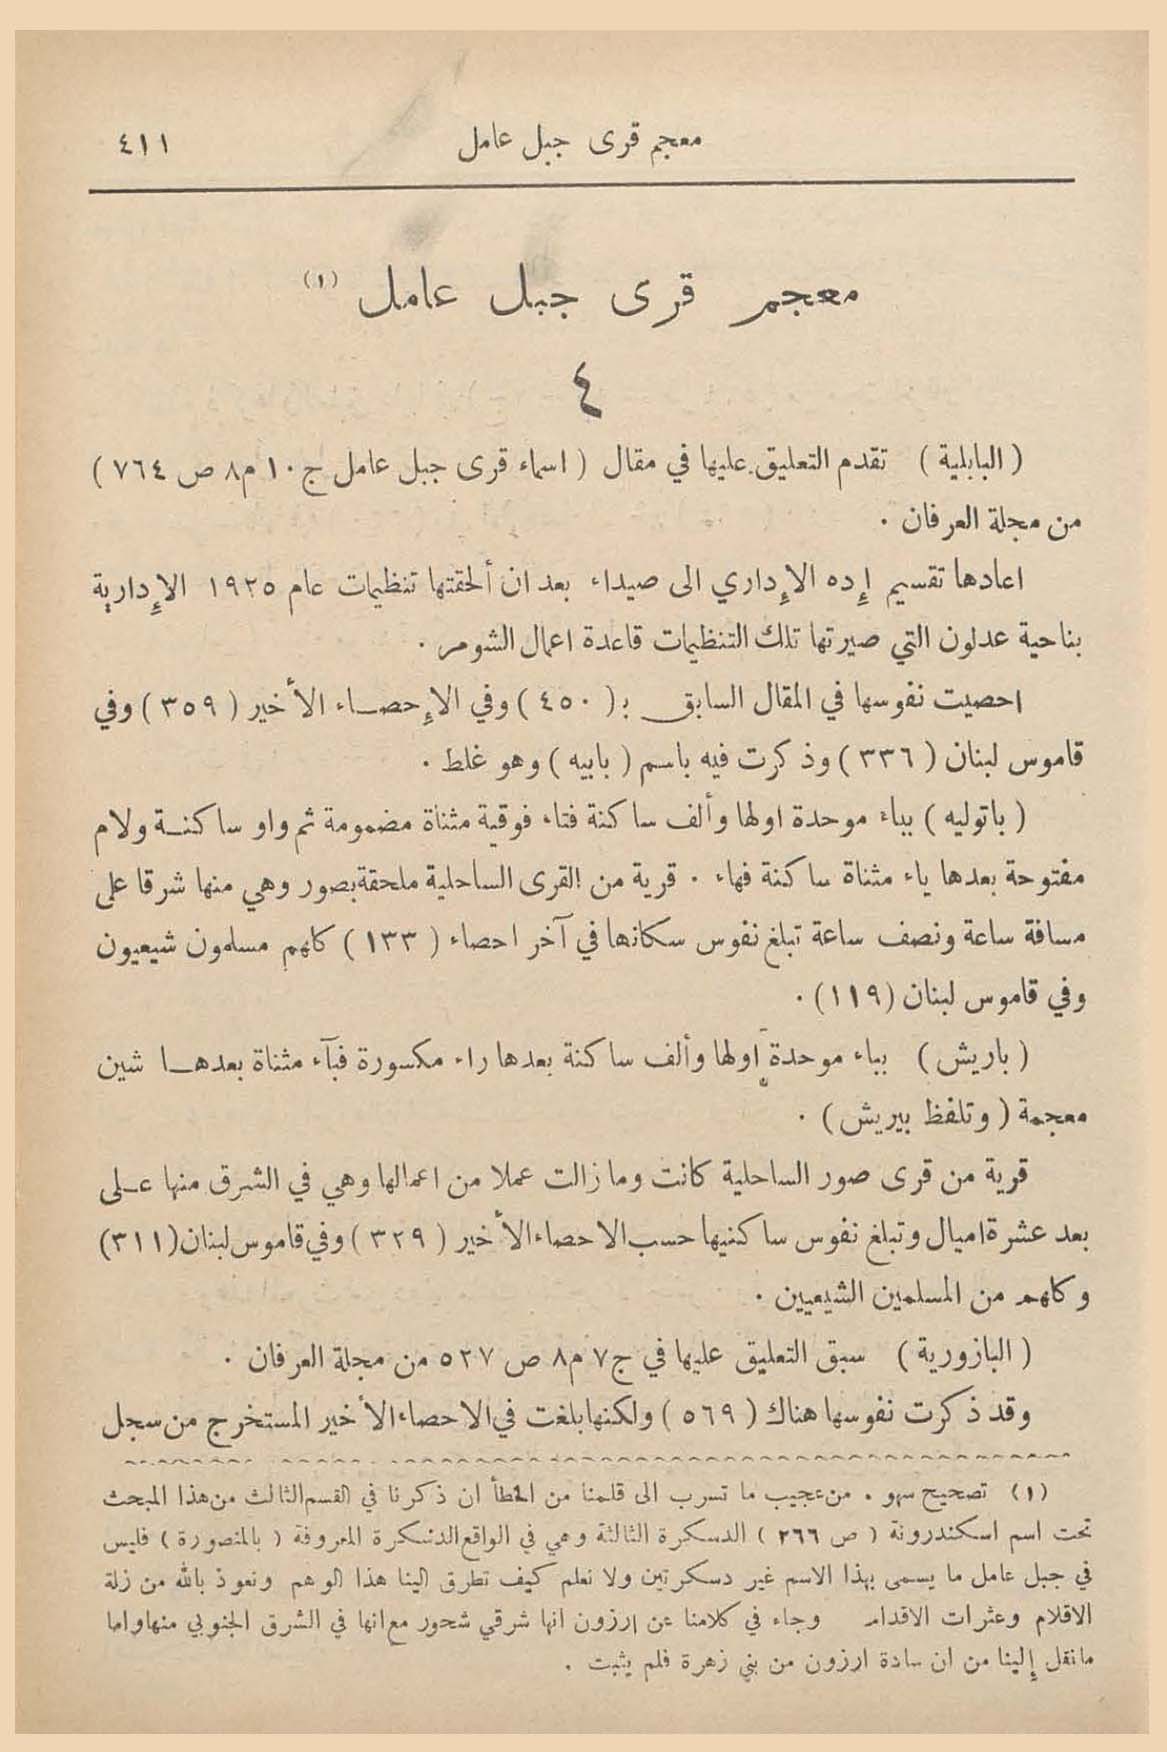 معجم قرى جبل عامل ٤١١
معجم قرى جبل عامل (١)
٤
( البابلية ) تقدم التعليق عليها في مقال ( اسماء قرى جبل عامل ج ١٠ م٨ ص ٧٦٤ )
من مجلة العرفان ٠
اعادها تقسيم إِده الإِداري الى صيداء بعد ان ألحقتها تنظيمات عام ١٩٢٥ الإِدارية
بناحية عدلون التي صيرتها تلك التنظيمات قاعدة اعمال الشومر ٠
احصيت نفوسها في المقال السابق بـ ( ٤٥٠ ) وفي الإِحصاء الأخير ( ٣٥٩ ) وفي
قاموس لبنان ( ٣٣٦ ) وذكرت فيه باسم ( بابيه ) وهو غلط ٠
( باتوليه ) بباء موحدة اولها وألف ساكنة فتاء فوقية مثناة مضمومة ثم واو ساكنة ولام
مفتوحة بعدها ياء مثناة ساكنة فهاء ٠ قرية من القرى الساحلية ملحقة بصور وهي منها شرقا على
مسافة ساعة ونصف ساعة تبلغ نفوس سكانها في آخر احصاء ( ١٣٣ ) كلهم مسلمون شيعيون
وفي قاموس لبنان (١١٩) ٠
( باريش ) بباء موحدة اولها وألف ساكنة بعدها راء مكسورة فيآء مثناة بعدها شين
معجمة ( وتلفظ بيريش ) ٠
قرية من قرى صور الساحلية كانت وما زالت عملا من اعمالها وهي في الشرق منها على
بعد عشرة اميال وتبلغ نفوس ساكنيها حسب الاحصاء الأخير ( ٣٢٩ ) وفي قاموس لبنان (٣١١)
وكلهم من المسلمين الشيعيين ٠
( البازورية ) سبق التعليق عليها في ج٧ م٨ ص ٥٢٧ من مجلة العرفان ٠
وقد ذكرت نفوسها هناك ( ٥٦٩ ) ولكنها بلغت في الاحصاء الأخير المستخرج من سجل
(١) تصحيح سهو ٠ من عجيب ما تسرب الى قلمنا من الخطأ ان ذكرنا في القسم الثالث من هذا المبحث
تحت اسم اسكندرونة ( ص ٢٦٦ ) الدسكرة الثالثة وهي في الواقع الدسكرة المعروفة ( بالمنصورة ) فليس
في جبل عامل ما يسمى بهذا الاسم غير دسكرتين ولا نعلم كيف تطرق الينا هذا الوهم ونعوذ بالله من زلة
الاقلام وعثرات الاقدام وجاء في كلامنا عن ارزون انها شرقي شحور مع انها في الشرق الجنوبي منها واما
ما نقل إلينا من ان سادة ارزون من بني زهرة فلم يثبت ٠